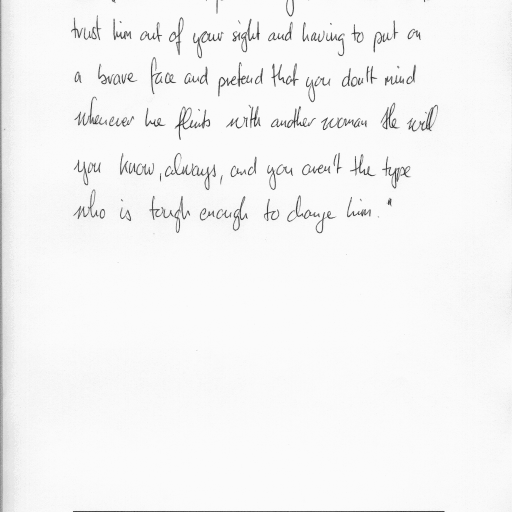 trust him out of your sight and having to put on
a brave face and pretend that you don't mind
whenever he flirts with another woman. He will
you know, always, and you aren't the type
who is tough enough to change him."